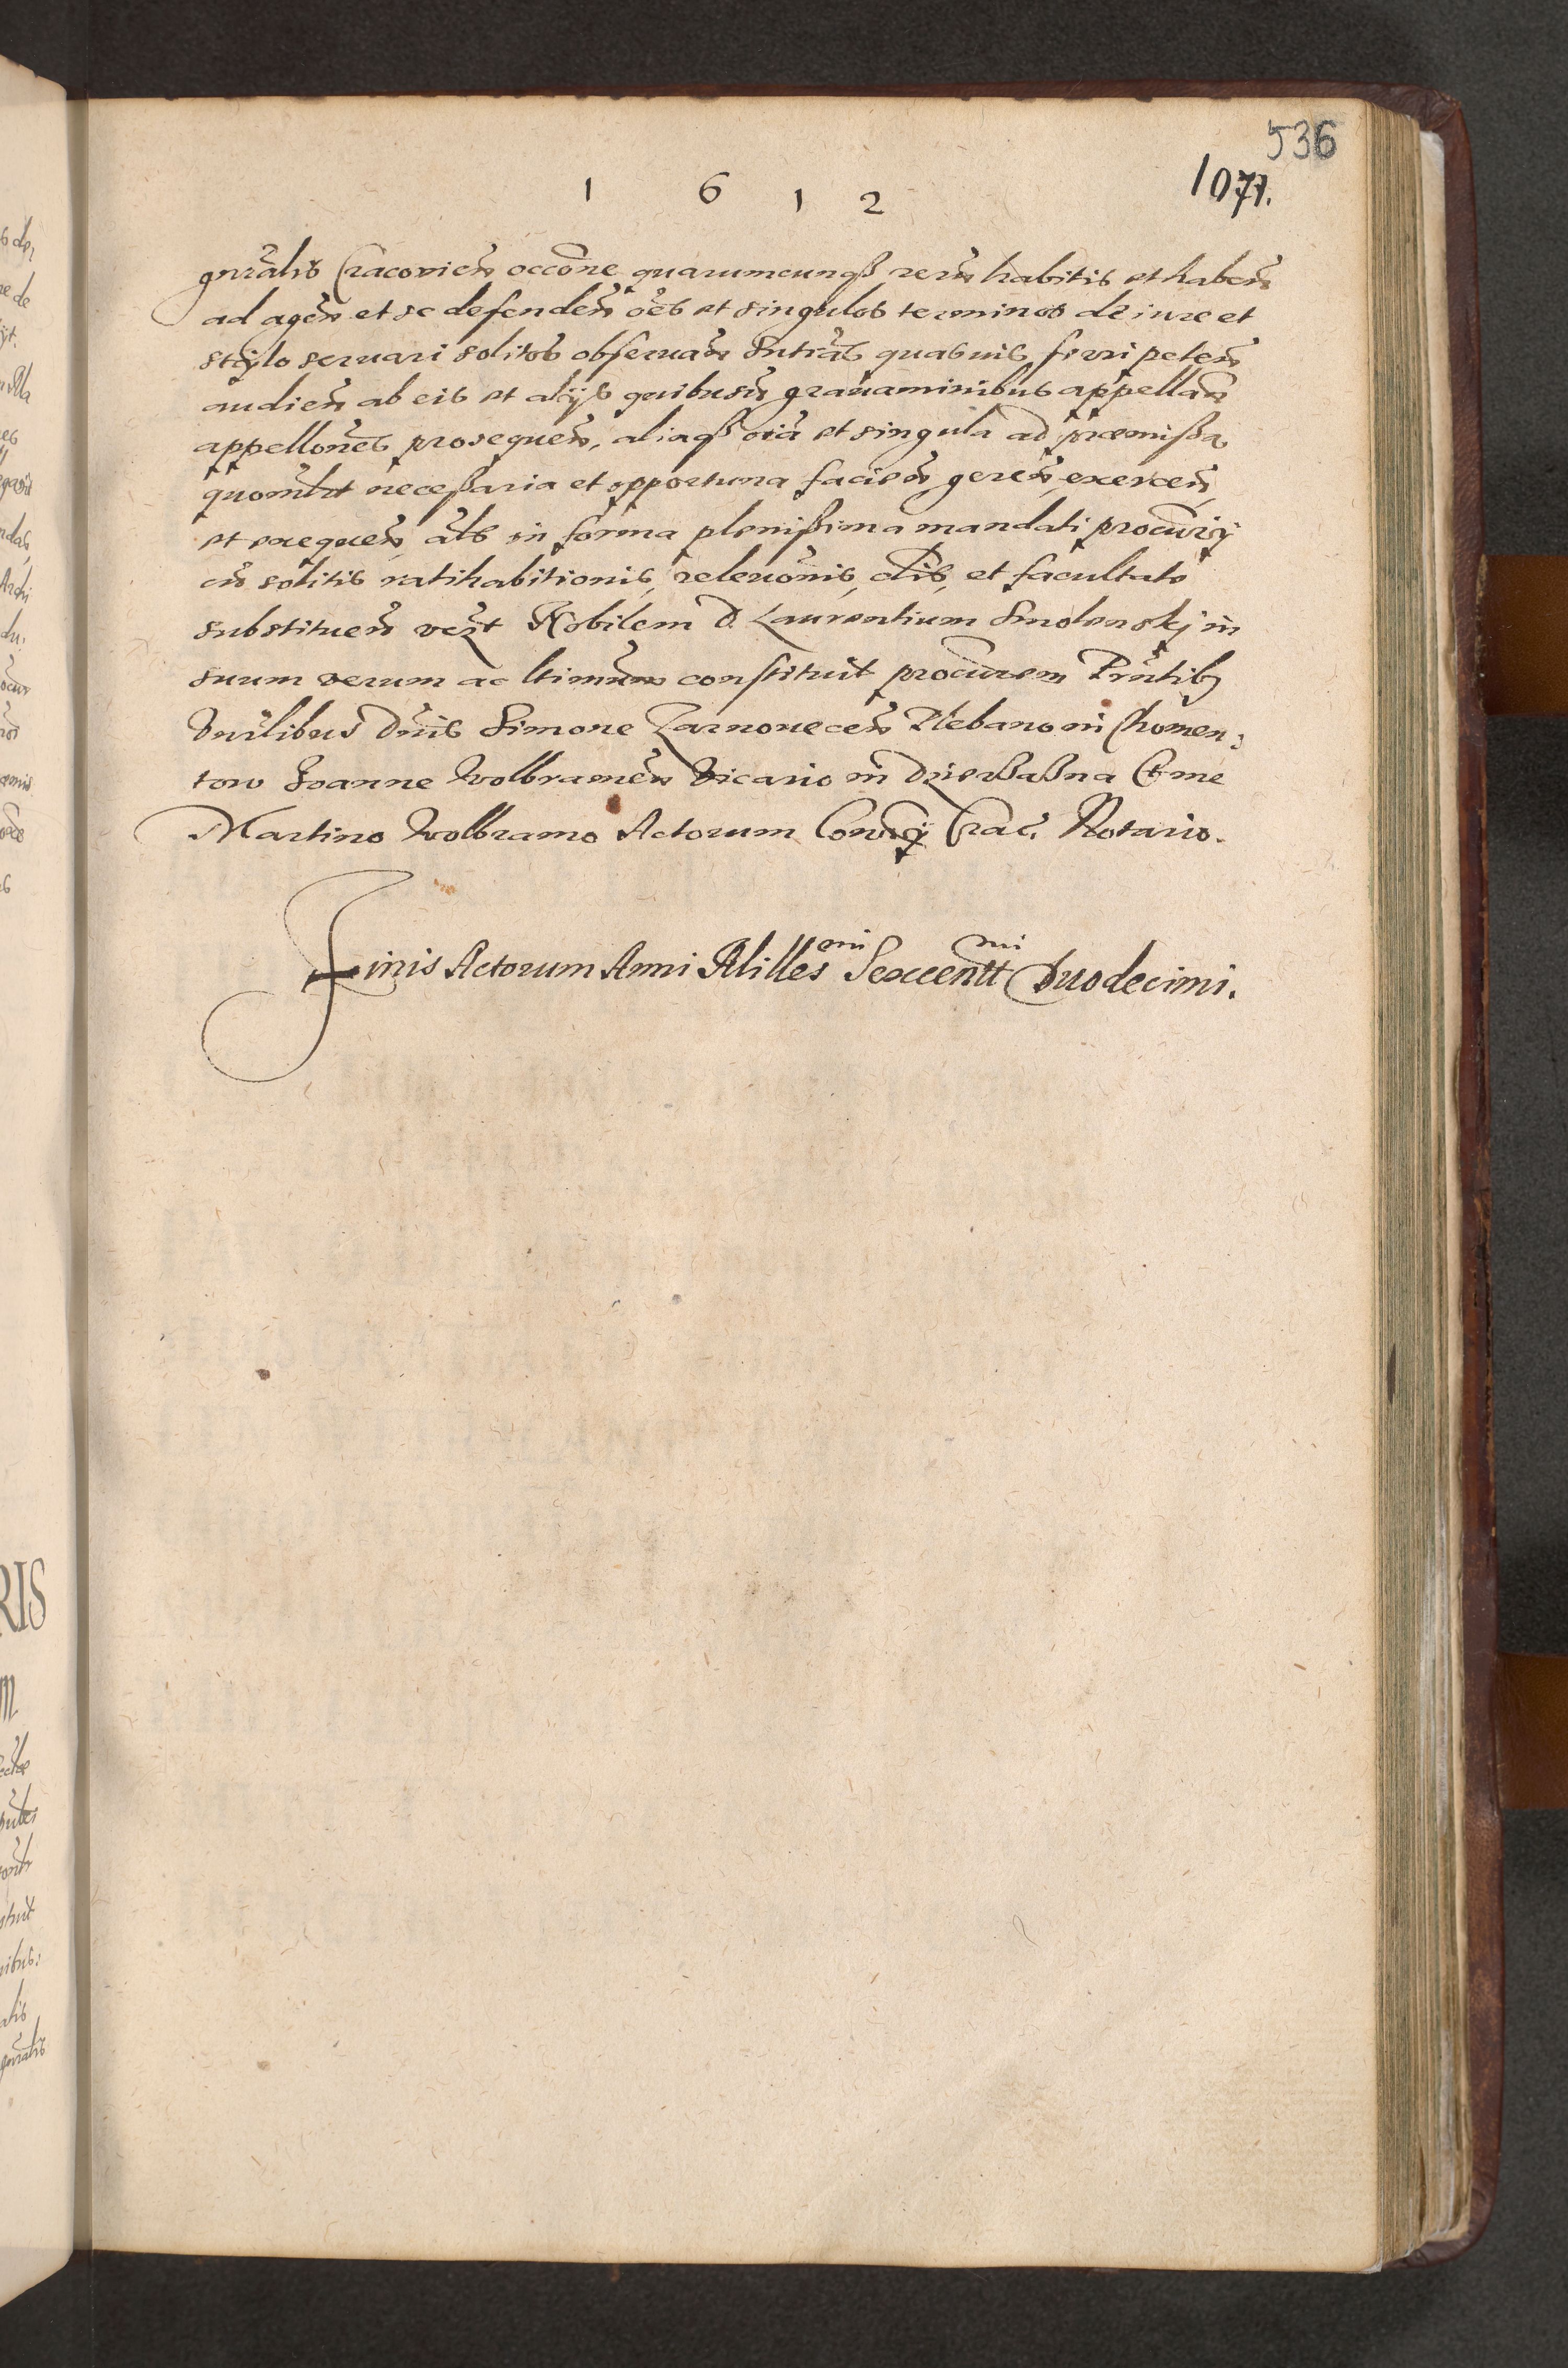 536
1 6 1 2
1071.
gnralis Cracovien occone quarumcunqꝫ rerū habitis et haben
ad agen et se defenden oēs et singulos terminos de iure et
stylo seruari solitos obseruan Sntias quasuis ferri peten
audien ab eis et alijs quibusuis grauaminibus appellan
appellones prosequen, aliaqꝫ oīa et singula ad præmissa
necessaria et opportuna facien geren, exercen,
et exequen, als in forma plenissima mandati procurij
cū solitis ratihabitionis, releuonis, et facultate
substituen Nobilem D. Laurentium Smolenskj in
suum verum ac constituit procurem Pntibꝫ
Dnis Simone Zarnouecen Plebano in Chomen:
tow Joanne Wolbramen Vicario in Et me
Martino Wolbramo Actorum Crac. Notario.
Finis Actorum Anni Milles mi Sexcentt mi Duodecimi.